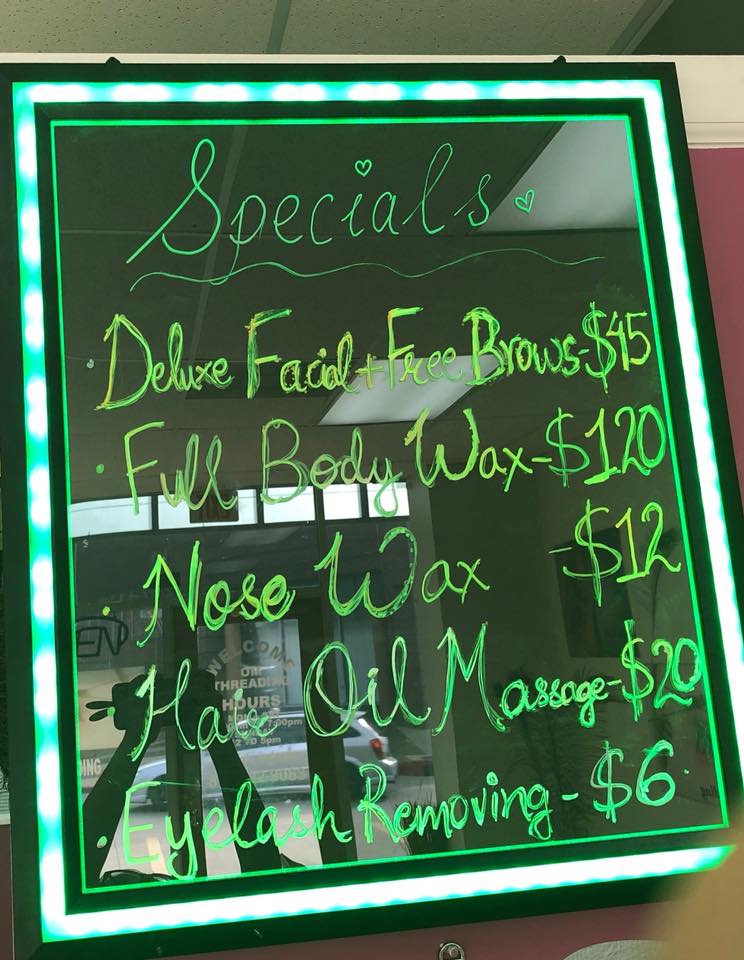 Specials
Deluxe Facial+Free Brows-$45
Full Body Wax-$120
Nose Wax -$12
Oil Massage-$20
Eyelash Removing-$6
WELCOME
OM
THREADING
HOURS